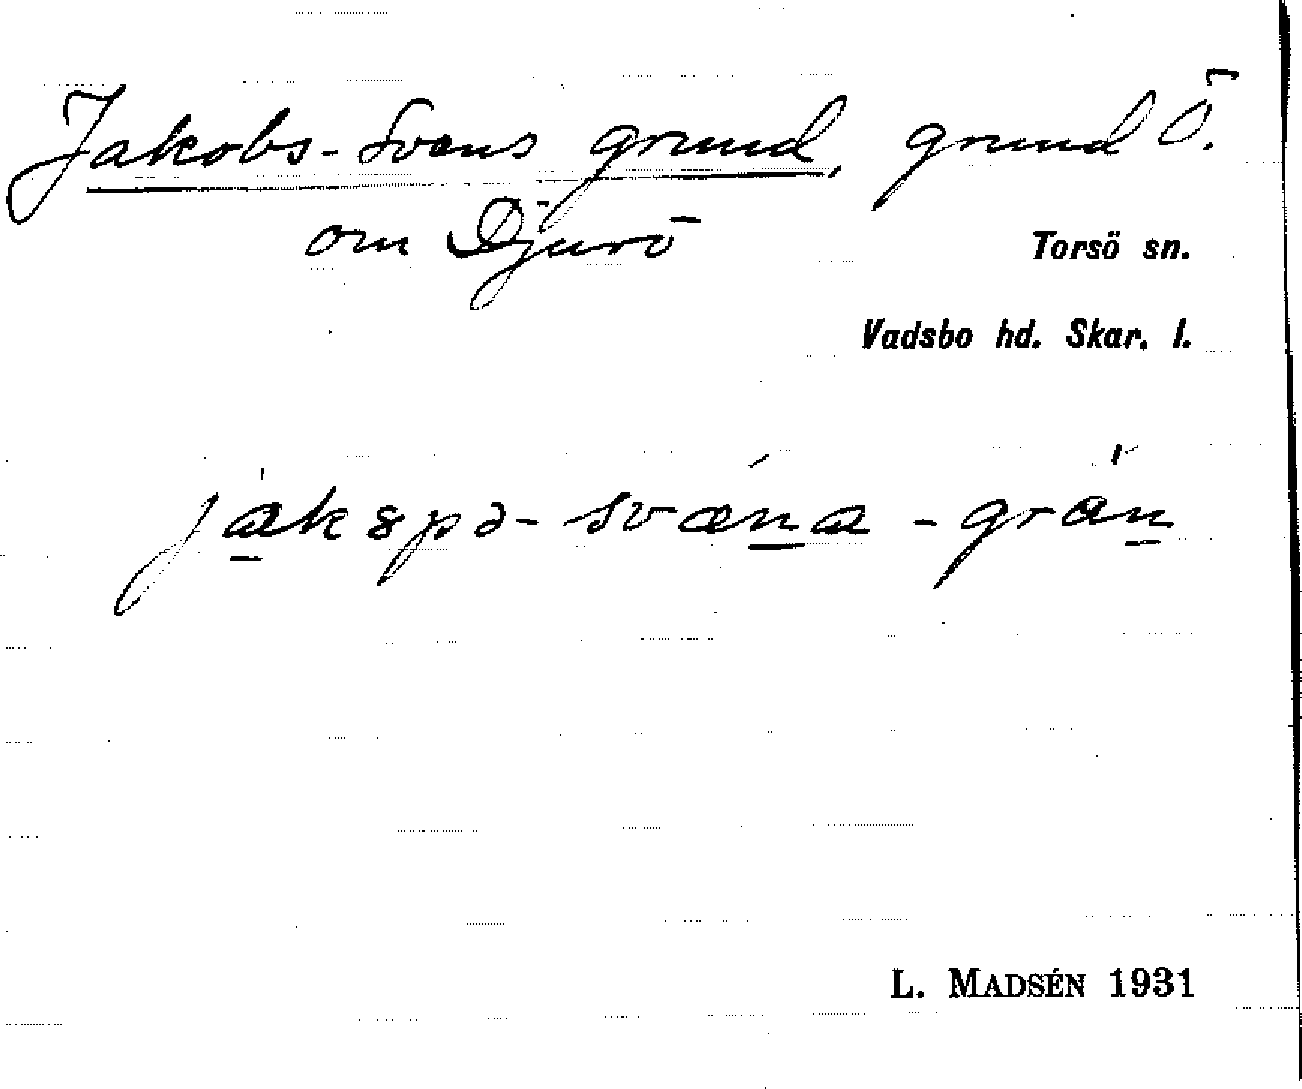 Jakobs-Svens grund, grund Ö.
om Djurö
Torsö sn.
Vadsbo hd. Skar. l.
L. MADSÉN 1931